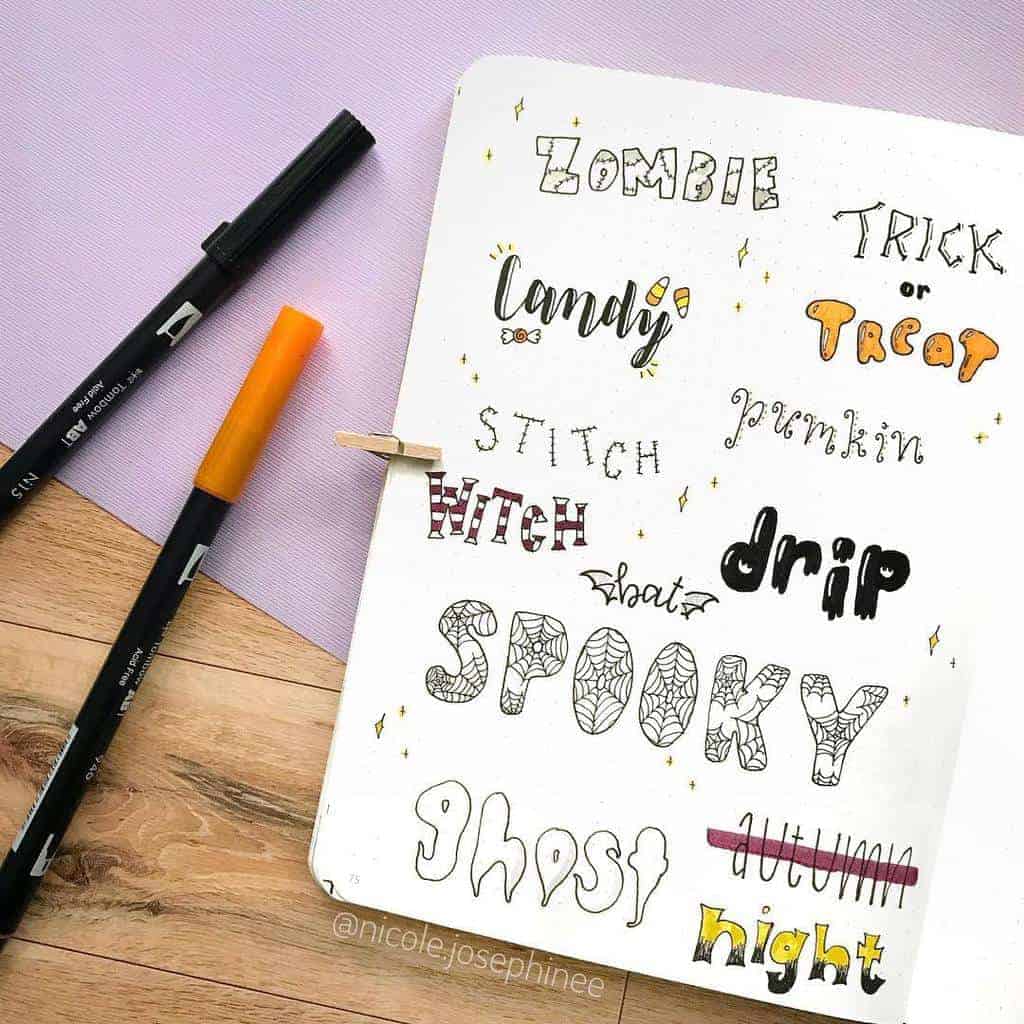 ZOMBIE
TRICK
or
TREAT
Candy
pumkin
STITCH
WITCH
drip
bat
SPOOKY
ghost
autumn
night
75
@nicole.josephinee
Tombow ABT
Acid Free
N15
Tombow ABT
Acid Free